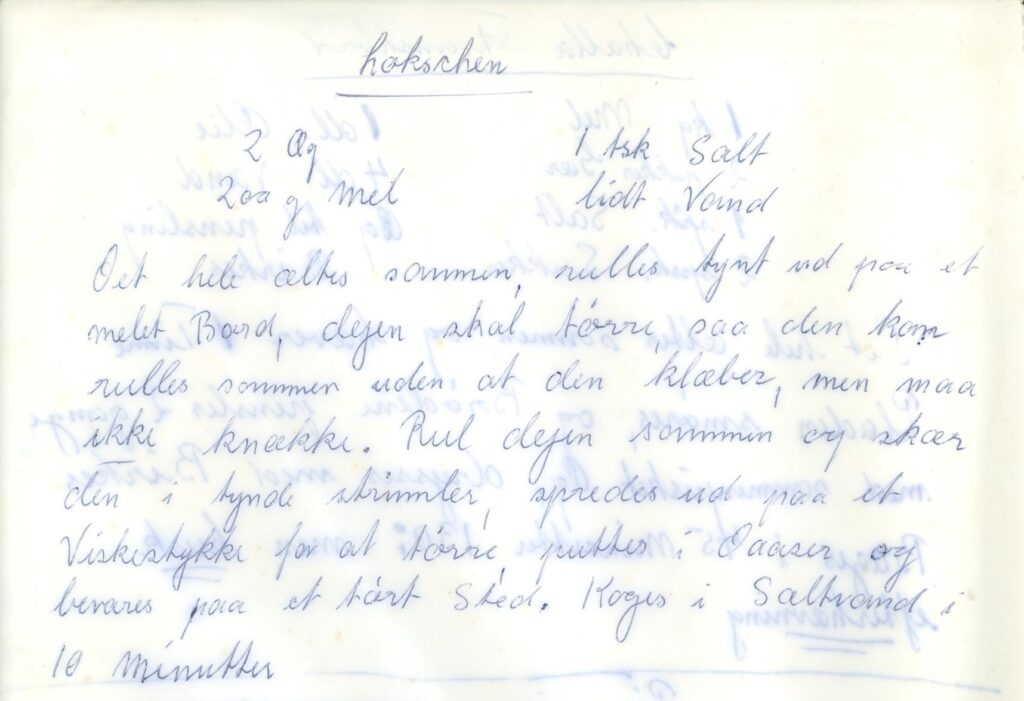 Lokschen
2 Æg 1 tsk Salt
200 g Mel lidt Vand
Det hele æltes sammen, rulles tynt ud paa et
melet Bord, dejen skal tørre, saa den kan
rulles sammen uden at den klæber, men maa
ikke knække. Rul dejen sammen og skær
den i tynde strimler, spredes ud paa et
Viskestykke for at tørre, puttes i Daaser og
bevares paa et tørt Sted. Koges i Saltvand i
10 Minutter